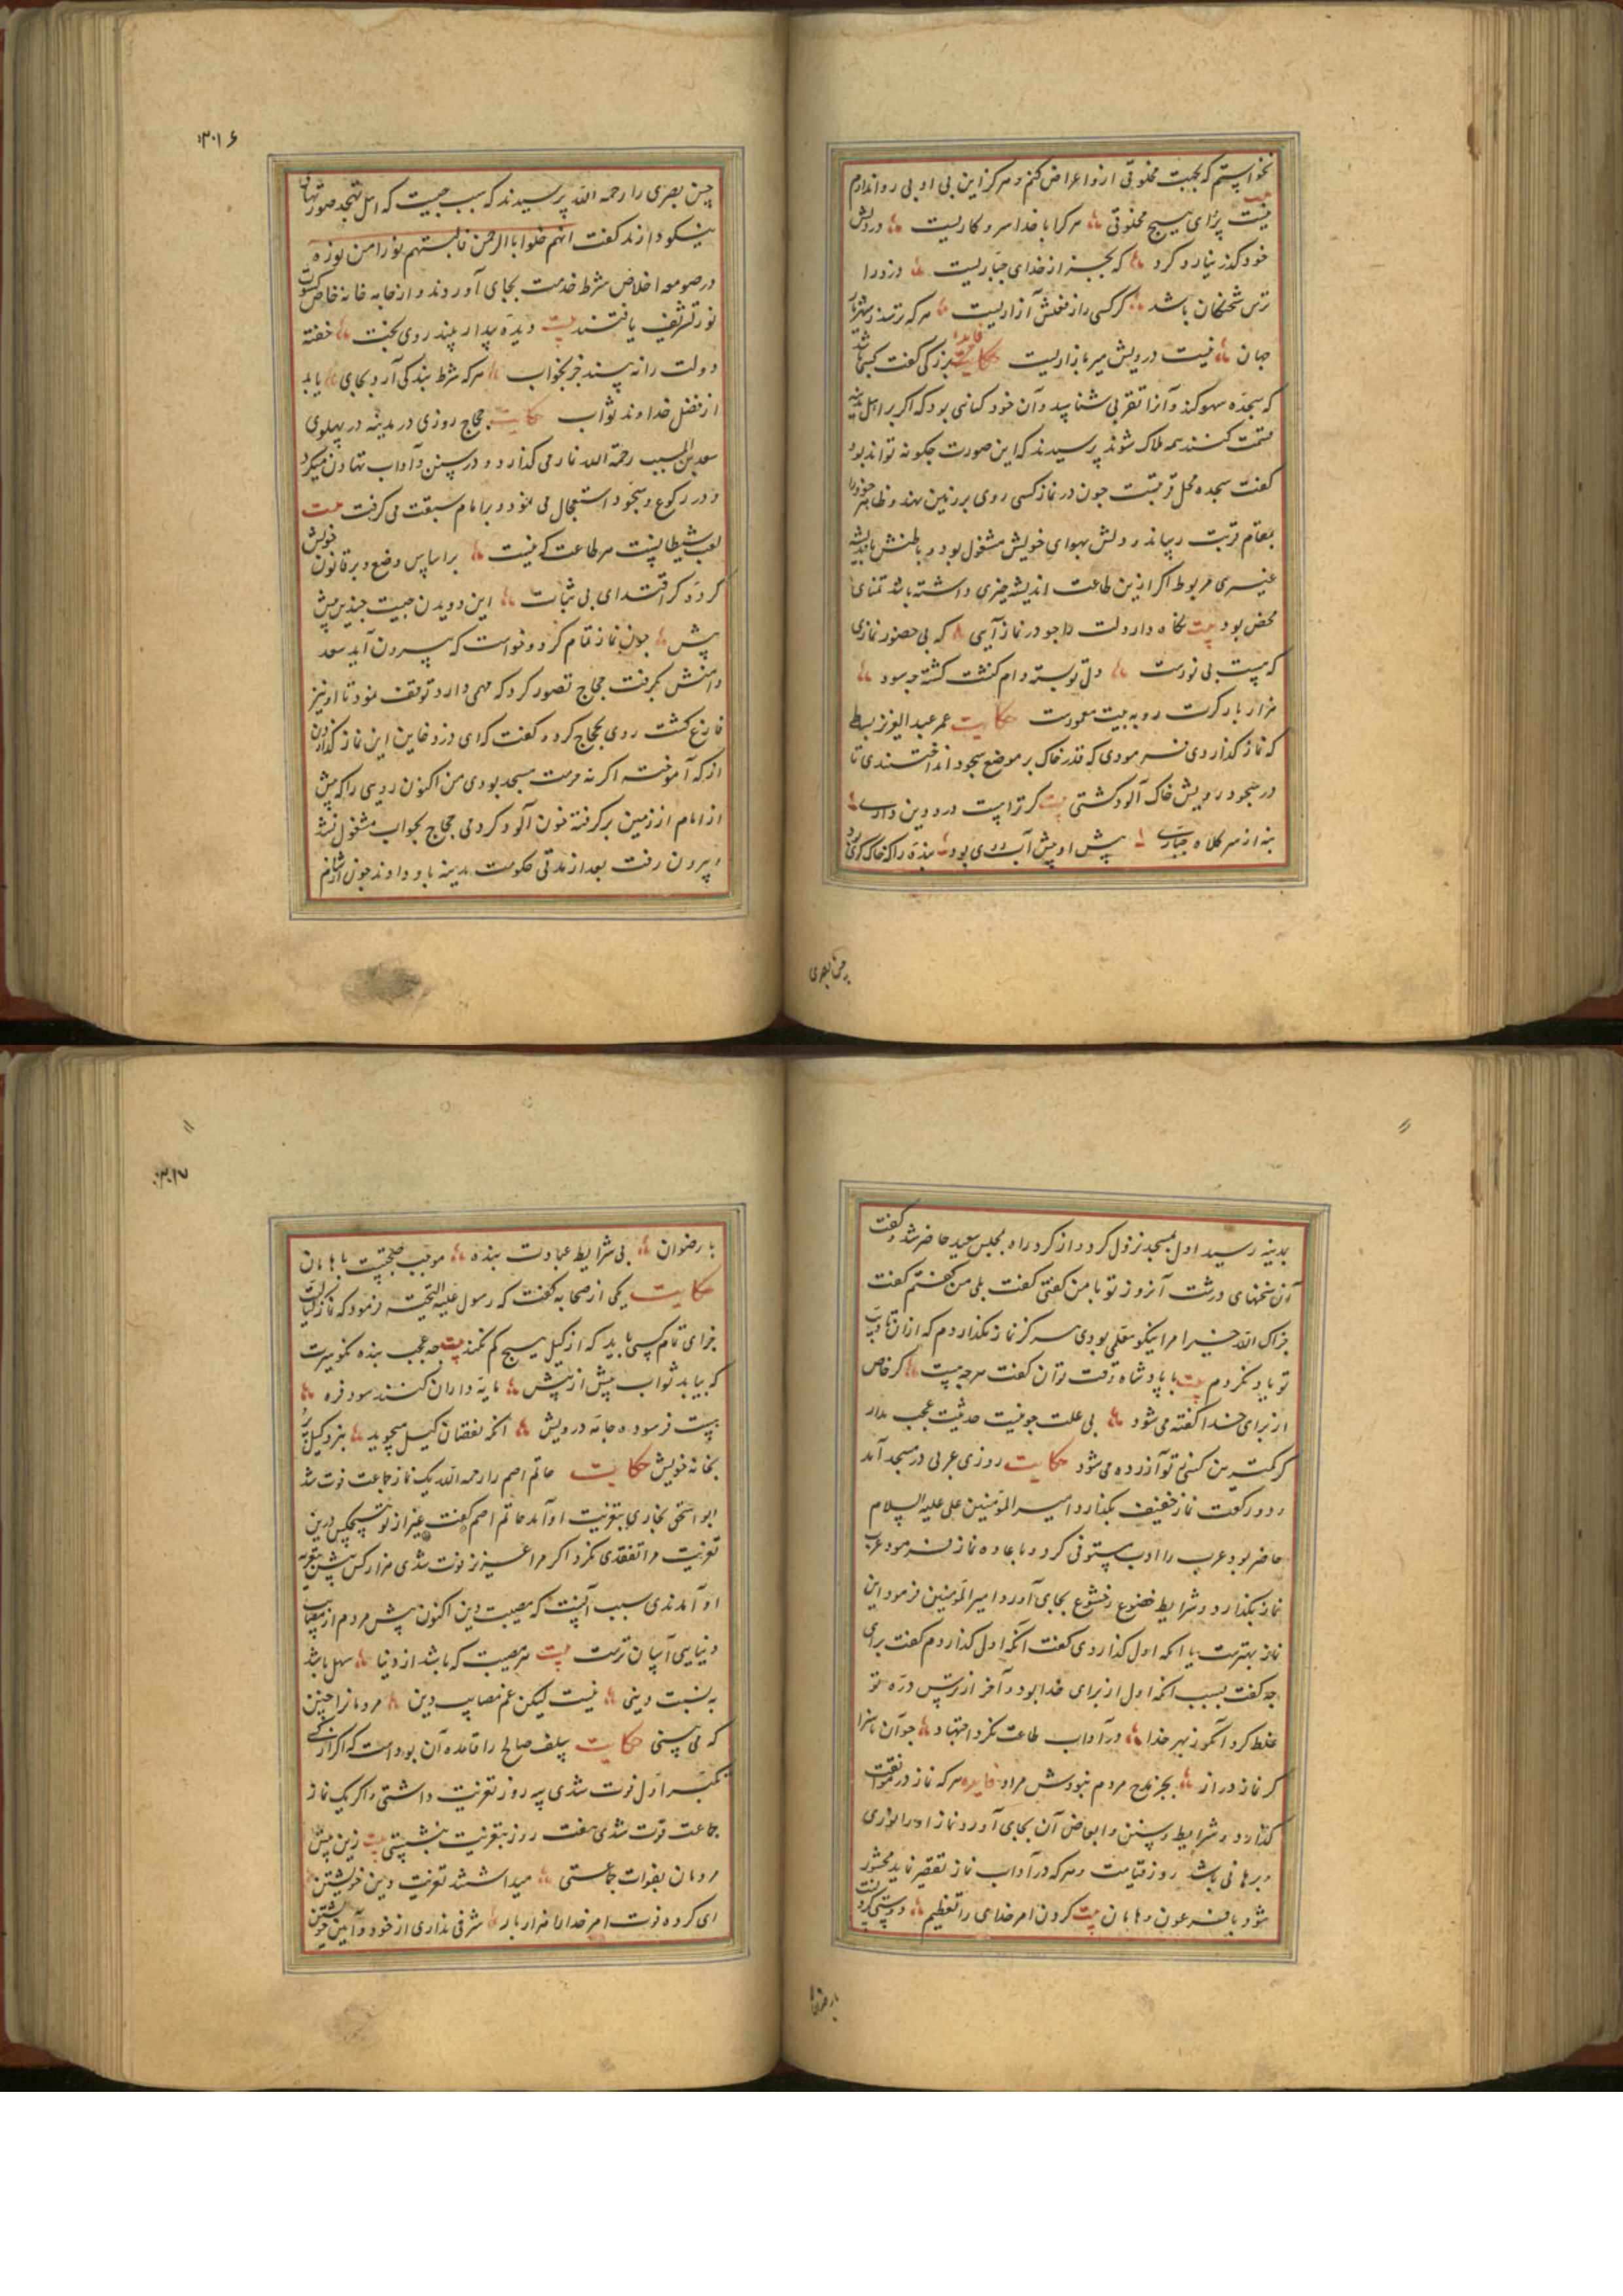 نخواستم که بجهت مخلوقی ازو اعراض کنم و هرکز این بی ادبی روا ندارم
نیست پروای هیچ مخلوقی هرکرا با خدا سر و کاریست درویش
خود کذر نیارد کرد که بجز از خدای جباریست دزد را
ترس شحنکان باشد کر کسی را ز فعلش آزاریست هرکه ترسد ز شهریار
جهان نیست درویش میر بازاریست حکایت فایده بزرکی کفت کسی باشد
که سجده سهو کند و آنرا تقربی شناسد و آن خود کناهی بود که اکر بر اهل مدینه
قسمت کنند همه هلاک شوند پرسیدند که این صورت چکونه تواند بود
کفت سجده محل قربتست چون در نماز کسی روی بر زمین نهد و ظاهر خود را
بمقام قربت رساند و دلش بهوای خویش مشغول بود و باطنش باندیشه
غیری مربوط اکر ازین طاعت اندیشه چیزی داشته باشد تمنای
محض بود بیت نکاه دار دلت را چو در نماز آیی که بی حضور نمازی
که هست بی نورست دل تو بسته دام کنشت کشته چه سود
هزار بار کرت رو به بیت معمورست حکایت عمر عبد العزیز بسط
که نماز کذاردی فرمودی که قدر خاک بر موضع سجود انداختندی تا
در سجود رویش خاک آلود کشتی بیت کر تراست درد دین داری
بنه از سر کلاه جباری پیش او پیش آبروی بود بنده را که خاک کوی بود
حسن بصری
۳۰۱۶
حسن بصری را رحمه الله پرسیدند که سبب چیست که اهل تهجد صورتهای
نیکو دارند کفت انهم خلوا بالرحمن فالبسهم نورا من نوره
در صومعه اخلاص شرط خدمت بجای آوردند و از جامه خانه خاص کسوت
نور تشریف یافتند بیت دیده بیدار بیند روی بخت خفته
دولت را نه بیند جز بخواب هرکه شرط بندکی آرد بجای یابد
از فضل خداوند ثواب حکایت حجاج روزی در مدینه در پهلوی
سعد بن المسیب رحمة الله نماز می کذارد و در سنن و آداب تهاون میکرد
و در رکوع و سجود استعجال می نمود و بر امام سبقت می کرفت بیت
لعب شیطانست هر طاعت که نیست بر اساس وضع و بر قانون خویش
کرده کر اقتدای بی ثبات این دویدن چیست چندین پیش
پیش چون نماز تمام کرد و خواست که بیرون آید سعد
دامنش بکرفت حجاج تصور کرد که مهمی دارد توقف نمود تا او نیز
فارغ کشت روی بحجاج کرد و کفت که ای دزد خاین این نماز کذاردن
از که آموختی اکر نه حرمت مسجد بودی من اکنون رویی را که پیش
از امام از زمین بر کرفته خون آلود کردمی حجاج بجواب مشغول نشد
و بیرون رفت بعد از مدتی حکومت مدینه باو دادند چون از شام
بمدینه رسید اول بمسجد نزول کرد و از کرد راه بمجلس سعید حاضر شد و کفت
آن سخنهای درشت آنروز تو با من کفتی کفت بلی من کفتم کفت
جزاک الله خیرا مرا نیکو معلمی بودی هرکز نماز نکذاردم که از آن
تو یاد نکردم بیت با پادشاه وقت توان کفت هرچه هست کر خاص
از برای خدا کفته می شود بی علت چو نیست حدیثت عجب مدار
کر کمترین کسی ز تو آزرده می شود حکایت روزی عربی در مسجد آمد
و دو رکعت نماز خفیف بکذارد امیر المؤمنین علی علیه السلام
حاضر بود عرب را ادب مستوفی کرد و باعاده نماز فرمود عرب
نماز بکذارد و شرایط خضوع و خشوع بجای آورد امیر المؤمنین فرمود این
نماز بهترست یا انکه اول کذاردی کفت انکه اول کذاردم کفت برای
چه کفت بسبب انکه اول از برای خدا بود و آخر از ترس دره تو
غلط کرد آنکو ز بهر خدا در آداب طاعت نکرد اجتهاد چو آن ناسزا
کر نماز دراز بجز مدح مردم نبودش مراد فایده هرکه نماز در مواقیت
کذارد و شرایط و سنن و ابعاض آن بجای آورد نماز او را نوری
و برهانی باشد روز قیامت و هرکه در آداب نماز تقصیر نماید محشور
شود با فرعون و هامان بیت کردن امر خدای را تعظیم دوستی کردنست
با رضوان
۳۰۱۷
با رضوان بی شرایط عبادت بنده موجب صحبتست با هامان
حکایت یکی از صحابه کفت که رسول علیه التحیه فرمود که نماز کیلیست
جزای تمام کسی یابد که از کیل هیچ کم نکند بیت چه عجب بنده نکو سیرت
که بیابد ثواب بیش از پیش مایه داران کنند سود فره
بیست فرسوده جامه درویش انکه نقصان کیل میجوید نبرد کیل پر
بخانه خویش حکایت حاتم اصم را رحمه الله یک نماز جماعت فوت شد
ابو اسحق بخاری بتعزیت او آمد حاتم اصم کفت غیر از تو هیچکس درین
تعزیت مرا تفقدی نکرد اکر مرا عزیزی فوت شدی هزار کس پیش بتعزیه
او آمدندی سبب آنست که مصیبت دین اکنون پیش مردم از مصایب
دنیایی آسان ترست بیت هر مصیبت که باشد از دنیا سهل باشد
به نسبت دینی نیست لیکن غم مصایب دین مردمانرا چنین
که می بینی حکایت سلف صالح را قاعده آن بوده است که اکر از کسی
تکبیر اول فوت شدی سه روز تعزیت داشتی و اکر یک نماز
جماعت فوت شدی هفت روز بتعزیت بنشستی بیت زین پیش
مردمان بفوات جماعتی میداشتند تعزیت دین خویشتن
ای کرده فوت امر خدا را هزار بار شرمی نداری از خود و آیین خویشتن